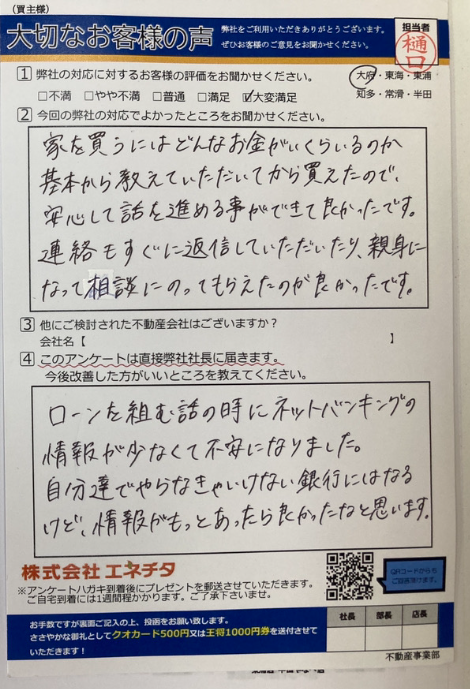 （買主様）
大切なお客様の声
弊社をご利用いただきありがとうございます。
ぜひお客様のご意見をお聞かせください。
担当者
樋口
1 弊社の対応に対するお客様の評価をお聞かせください。
□不満 □やや不満 □普通 □満足 ☑大変満足
大府・東海・東浦
知多・常滑・半田
2 今回の弊社の対応でよかったところをお聞かせください。
家を買うにはどんなお金がいくらいるのか
基本から教えていただいてから買えたので、
安心して話を進める事ができて良かったです。
連絡もすぐに返信していただいたり、親身に
なって相談にのってもらえたのが良かったです。
3 他にご検討された不動産会社はございますか？
会社名【 】
4 このアンケートは直接弊社社長に届きます。
今後改善した方がいいところを教えてください。
ローンを組む話の時にネットバンキングの
情報が少なくて不安になりました。
自分達でやらなきゃいけない銀行にはなる
けど、情報がもっとあったら良かったなと思います。
株式会社 エネチタ
※アンケートハガキ到着後にプレゼントを郵送させていただきます。
ご自宅到着には1週間程かかります。ご了承下さいませ。
QRコードからも
ご回答頂けます。
お手数ですが裏面ご記入の上、投函をお願い致します。
ささやかな御礼としてクオカード500円又は王将1000円券を送付させて
いただきます！
社長 部長 店長
不動産事業部